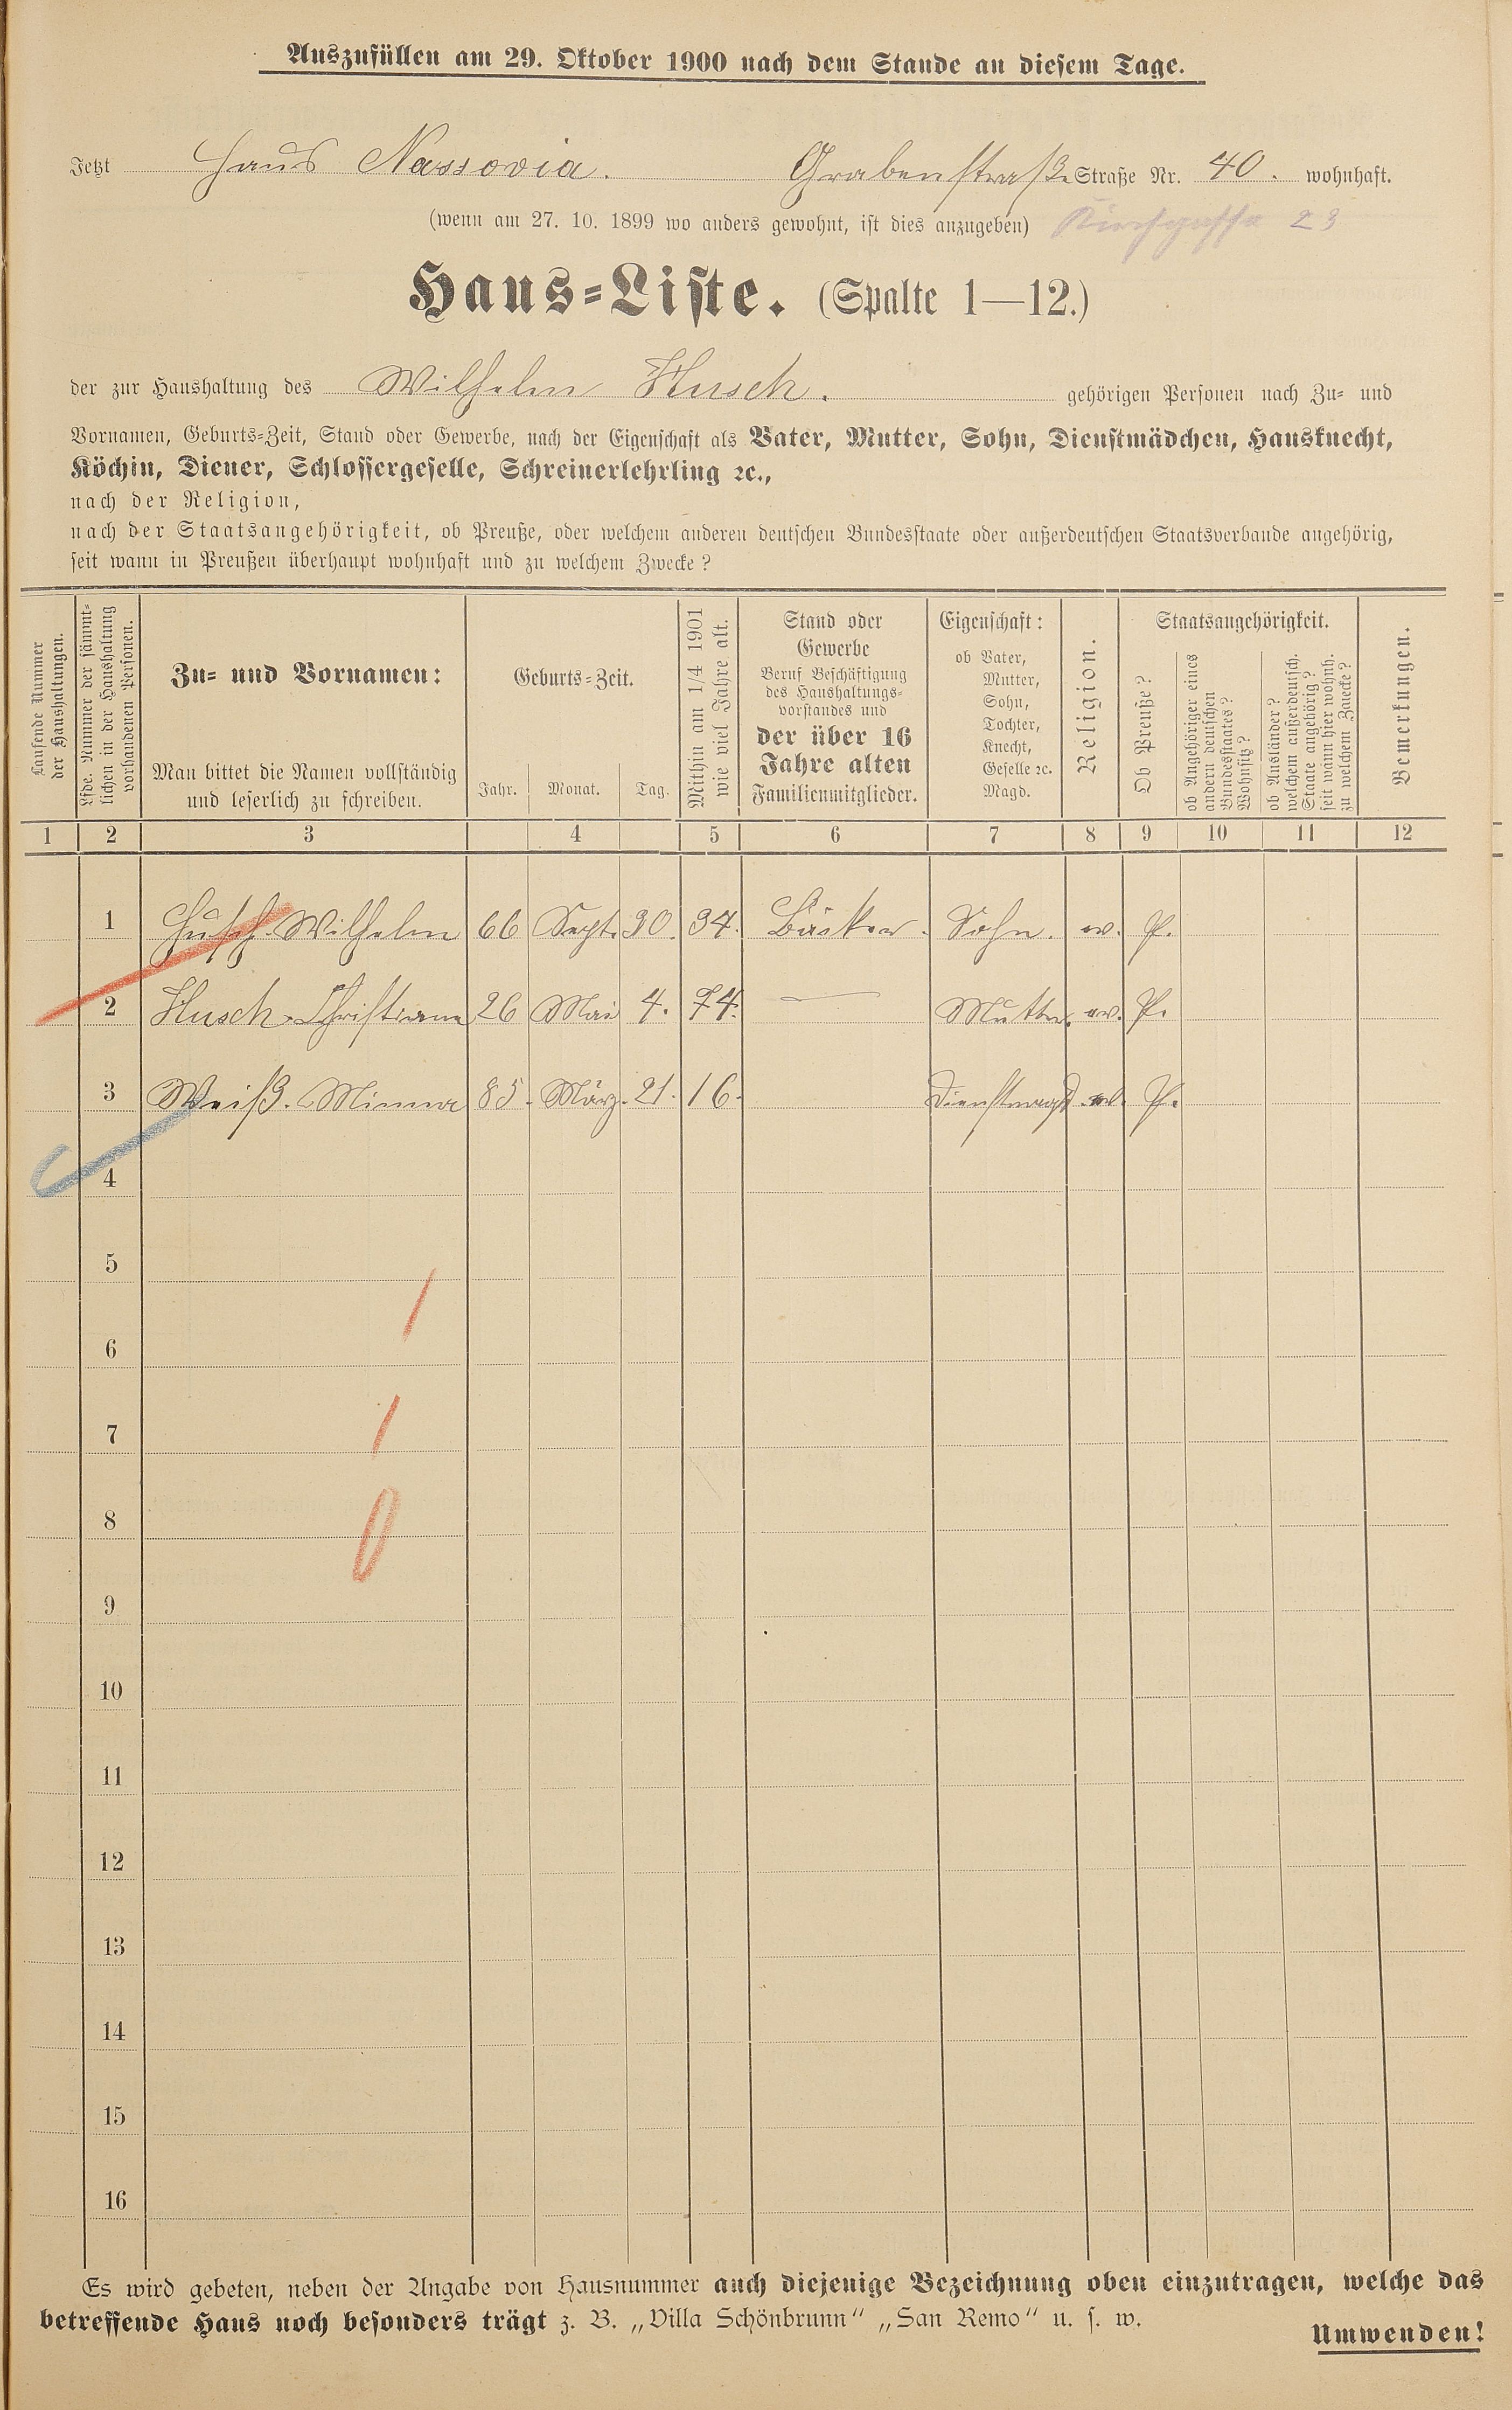 Auszufüllen am 29. Oktober 1900 nach dem Stande an diesem Tage.
Jetzt Haus Nassovia. Grabenstraße Straße Nr. 40. wohnhaft.
(wenn am 27. 10. 1899 wo anders gewohnt, ist dies anzugeben) Kirchgasse 23
Haus-Liste. (Spalte 1—12.)
der zur Haushaltung des Wilhelm Husch. gehörigen Personen nach Zu- und
Vornamen, Geburts-Zeit, Stand oder Gewerbe, nach der Eigenschaft als Vater, Mutter, Sohn, Dienstmädchen, Hausknecht,
Köchin, Diener, Schlossergeselle, Schreinerlehrling ꝛc.,
nach der Religion,
nach der Staatsangehörigkeit, ob Preuße, oder welchem anderen deutschen Bundesstaate oder außerdeutschen Staatsverbande angehörig,
seit wann in Preußen überhaupt wohnhaft und zu welchem Zwecke?
Laufende Nummer
der Haushaltungen.
Lfde. Nummer der sämmt-
lichen in der Haushaltung
vorhandenen Personen.
Zu- und Vornamen:
Man bittet die Namen vollständig
und leserlich zu schreiben.
Geburts-Zeit.
Jahr. Monat. Tag.
Mithin am 1/4 1901
wie viel Jahre alt.
Stand oder
Gewerbe
Beruf Beschäftigung
des Haushaltungs-
vorstandes und
der über 16
Jahre alten
Familienmitglieder.
Eigenschaft:
ob Vater,
Mutter,
Sohn,
Tochter,
Knecht,
Geselle ꝛc.
Magd.
Religion.
Staatsangehörigkeit.
Ob Preuße?
ob Angehöriger eines
andern deutschen
Bundesstaates?
Wohnsitz?
ob Ausländer?
welchem außerdeutsch.
Staate angehörig?
seit wann hier wohnh.
zu welchem Zwecke?
Bemerkungen.
1 2 3 4 5 6 7 8 9 10 11 12
1 Husch. Wilhelm 66 Sept. 30. 34. Bäcker. Sohn. ev. P.
2 Husch. Christiane 26 Mai 4. 74. — Mutter. ev. P.
3 Weiß. Minna 85. März. 21. 16. Dienstmagd ev. P.
4
5
6
7
8
9
10
11
12
13
14
15
16
Es wird gebeten, neben der Angabe von Hausnummer auch diejenige Bezeichnung oben einzutragen, welche das
betreffende Haus noch besonders trägt z. B. „Villa Schönbrunn“ „San Remo“ u. s. w.
Umwenden!